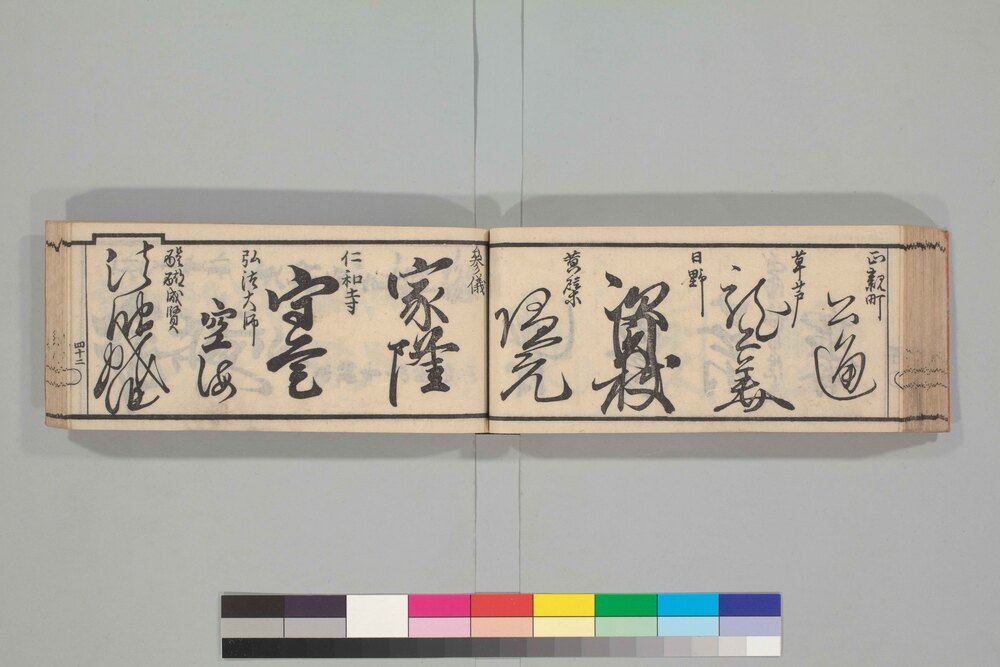 正親町
公通
草芦
龍公美
日野
資枝
黄檗
隠元
参儀
家隆
仁和寺
守覚
弘法大師
空海
醍醐成賢
四十二